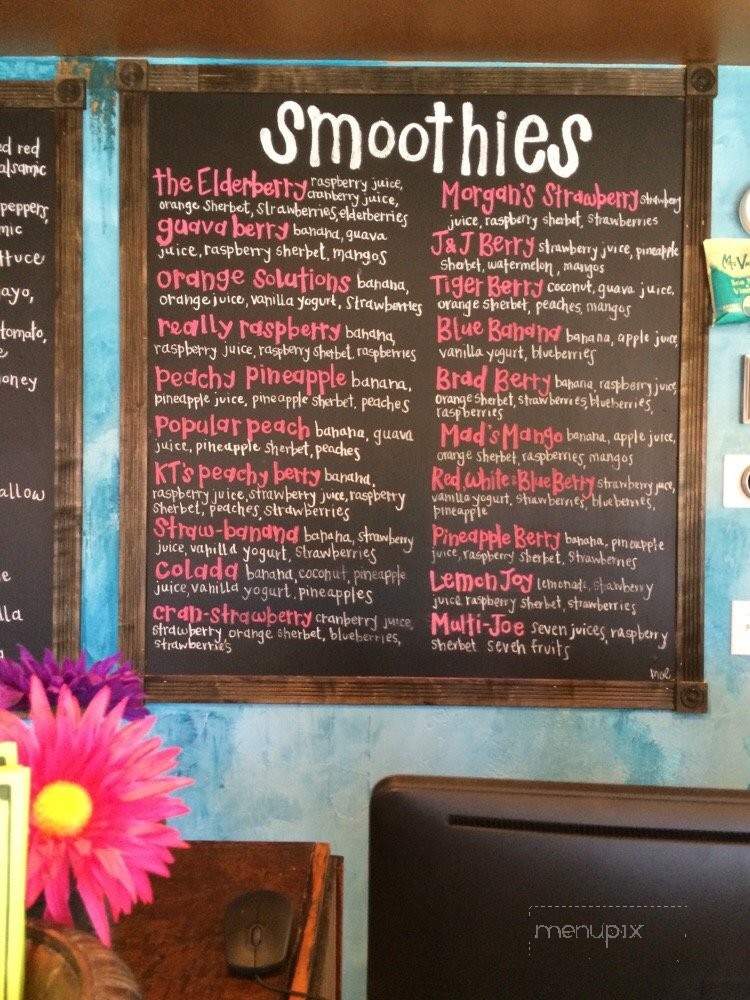 smoothies
the Elderberry raspberry juice,
cranberry juice,
orange sherbet, strawberries, elderberries
guava berry banana, guava
juice, raspberry sherbet, mangos
orange solutions banana,
orange juice, vanilla yogurt, strawberries
really raspberry banana,
raspberry juice, raspberry sherbet, raspberries
peachy pineapple banana,
pineapple juice, pineapple sherbet, peaches
popular peach banana, guava
juice, pineapple sherbet, peaches
KT's peachy berry banana,
raspberry juice, strawberry juice, raspberry
sherbet, peaches, strawberries
Straw-banana banana, strawberry
juice, vanilla yogurt, strawberries
colada banana, coconut, pineapple
juice, vanilla yogurt, pineapples
cran-strawberry cranberry juice,
strawberry, orange sherbet, blueberries,
strawberries
Morgan's Strawberry strawberry
juice, raspberry sherbet, strawberries
J&J Berry strawberry juice, pineapple
sherbet, watermelon, mangos
Tiger Berry coconut, guava juice,
orange sherbet, peaches, mangos
Blue Banana banana, apple juice,
vanilla yogurt, blueberries
Brad Berry banana, raspberry juice,
orange sherbet, strawberries, blueberries,
raspberries
Mad's Mango banana, apple juice,
orange sherbet, raspberries, mangos
Red, white & Blue Berry strawberry juice,
vanilla yogurt, strawberries, blueberries,
pineapple
Pineapple Berry banana, pineapple
juice, raspberry sherbet, strawberries
Lemon Joy lemonade, strawberry
juice raspberry sherbet, strawberries
Multi-Joe seven juices, raspberry
sherbet seven fruits
red
alsamic
peppers,
ayo,
tomato,
oney
allow
lla
menupix